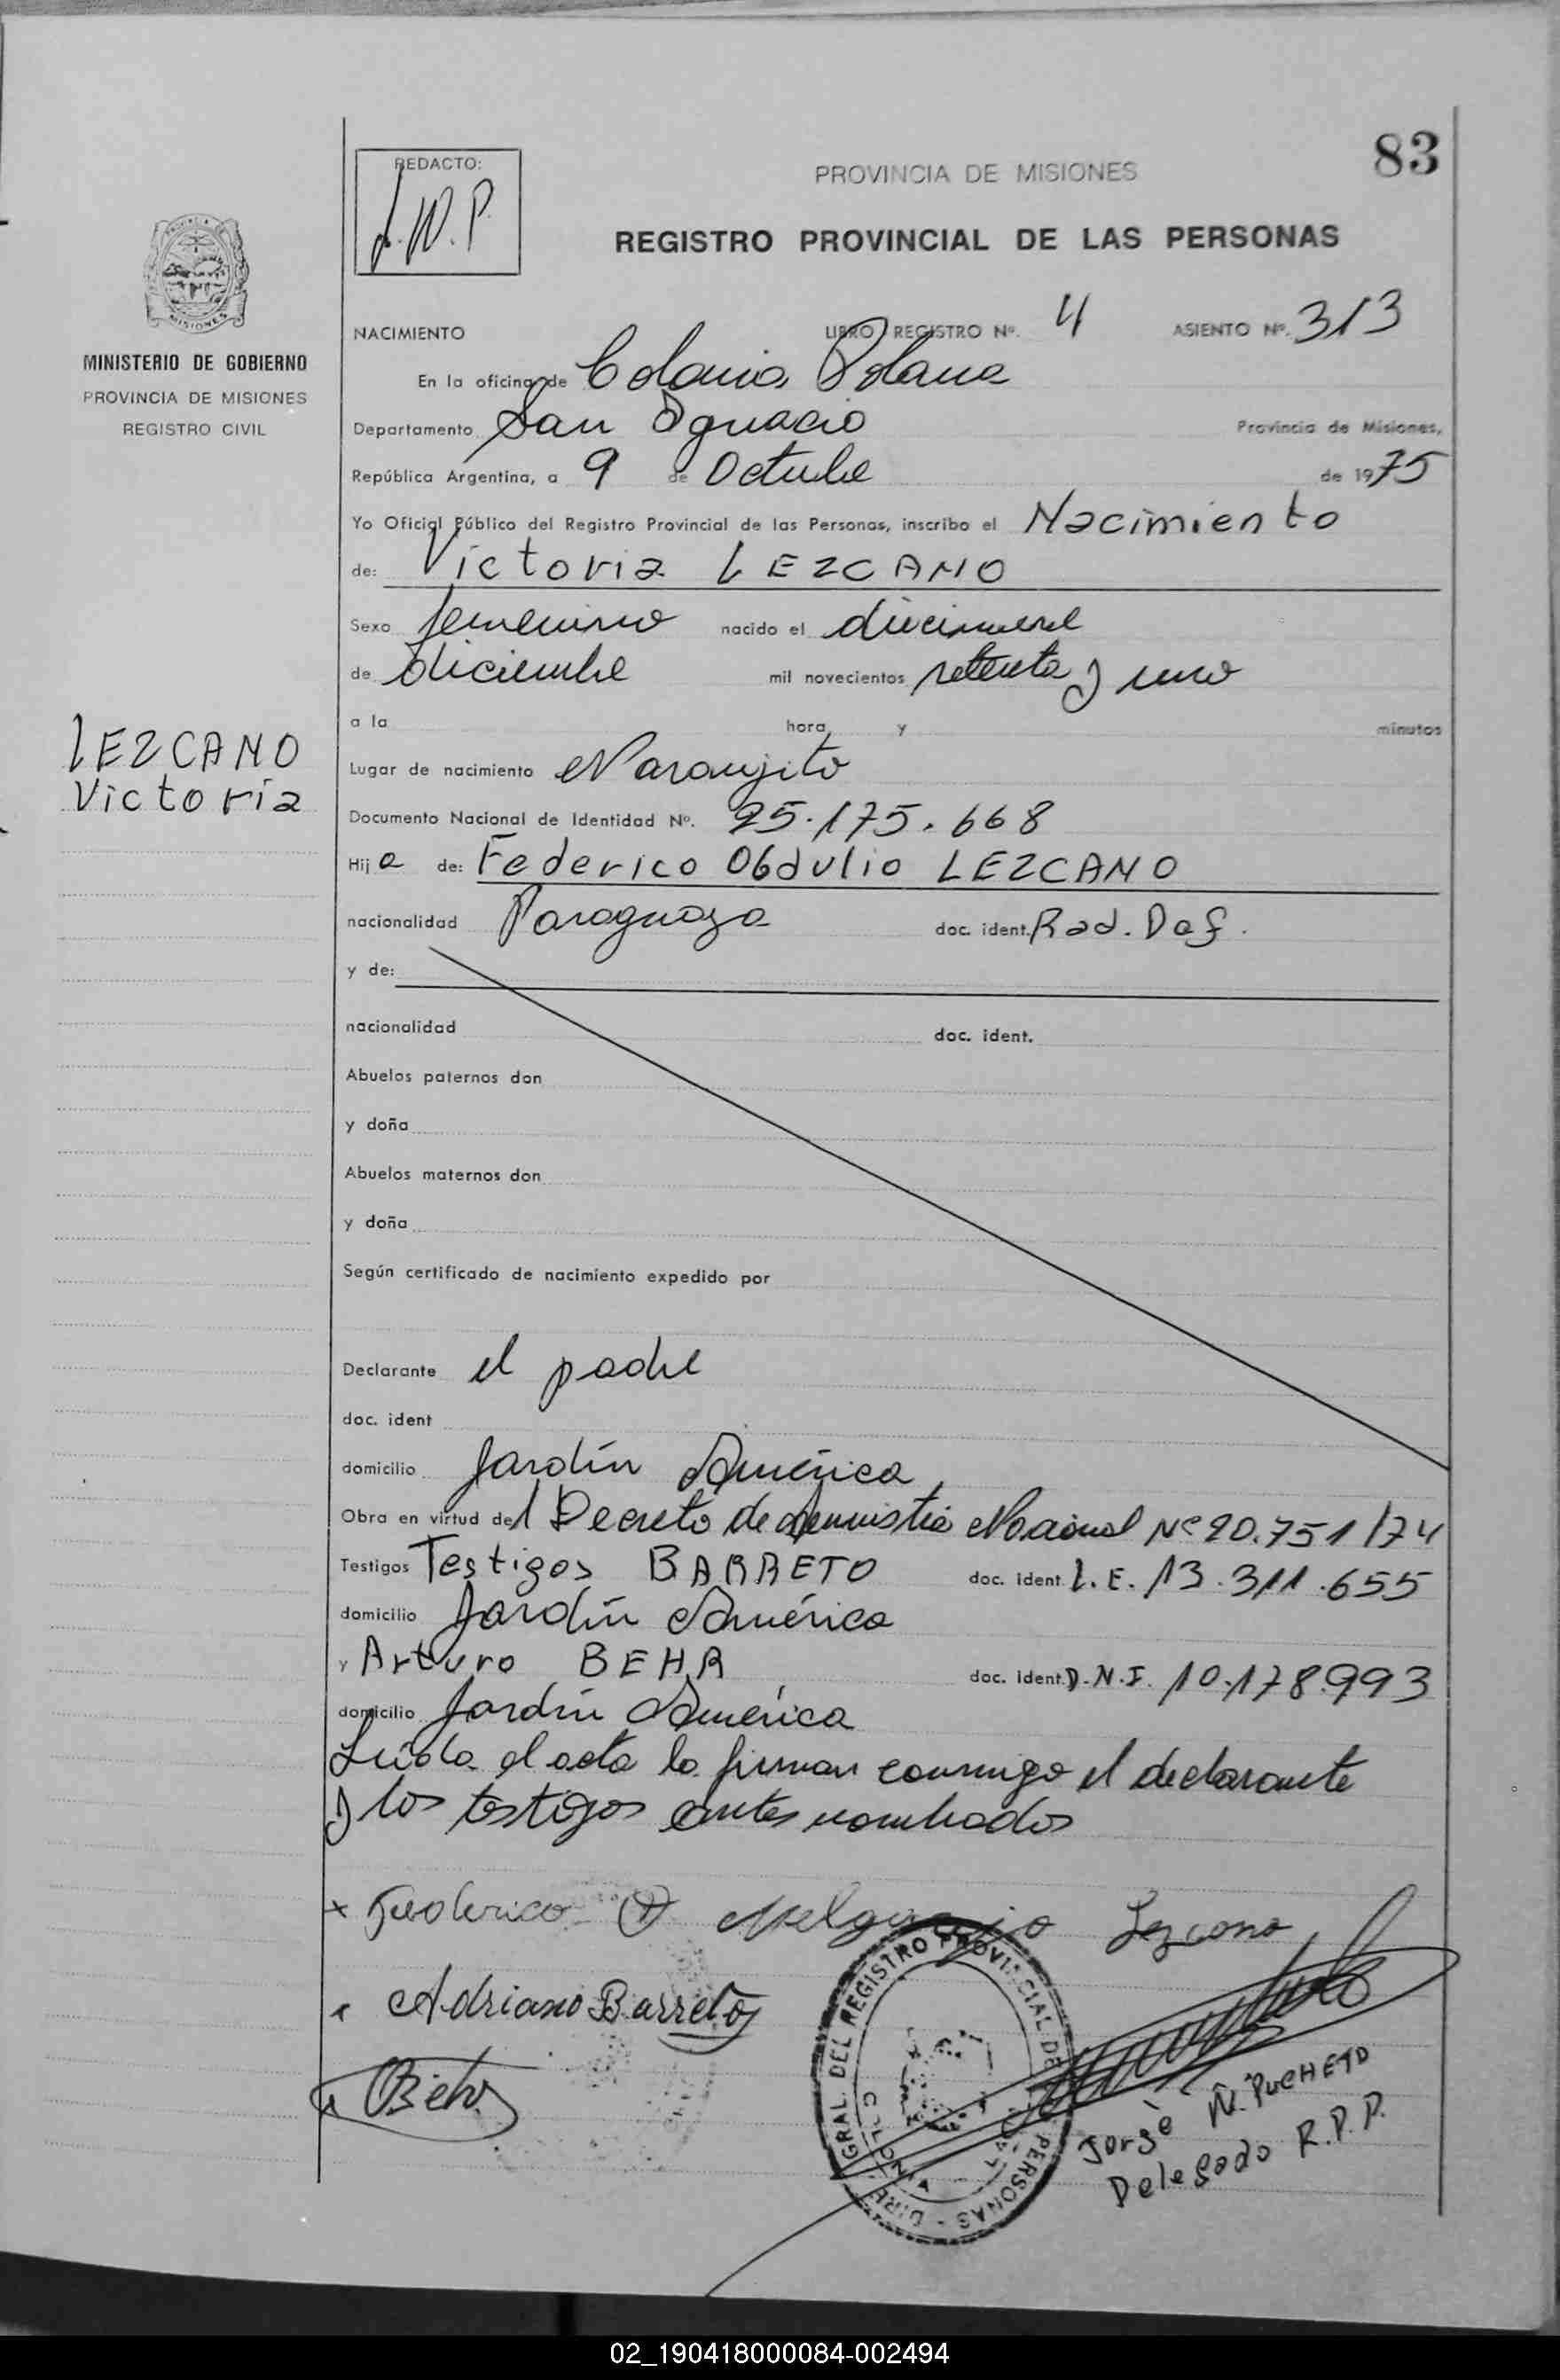 83
REDACTO:
J.W.P.
PROVINCIA DE MISIONES
REGISTRO PROVINCIAL DE LAS PERSONAS
MISIONES
MINISTERIO DE GOBIERNO
PROVINCIA DE MISIONES
REGISTRO CIVIL
NACIMIENTO LIBRO REGISTRO Nº. 4 ASIENTO Nº. 313
En la oficina de Colonia Polana
Departamento San Ignacio Provincia de Misiones,
República Argentina, a 9 de Octubre de 1975
Yo Oficial Público del Registro Provincial de las Personas, inscribo el Nacimiento
de: Victoria LEZCANO
Sexo femenino nacido el diecinueve
de diciembre mil novecientos setenta y uno
a la hora y minutos
LEZCANO
Victoria
Lugar de nacimiento Naranjito
Documento Nacional de Identidad Nº. 25.175.668
Hija de: Federico Obdulio LEZCANO
nacionalidad Paraguaya doc. ident. Rad. Def.
y de:
nacionalidad doc. ident.
Abuelos paternos don
y doña
Abuelos maternos don
y doña
Según certificado de nacimiento expedido por
Declarante el padre
doc. ident
domicilio Jardín América
Obra en virtud del Decreto de Amnistia Nacional Nº 20.751/74
Testigos Testigos BARRETO doc. ident L.E. 13.311.655
domicilio Jardín América
y Arturo BEHR doc. ident. D.N.I. 10.178.993
domicilio Jardín América
Leída el acta la firman conmigo el declarante
y los testigos antes nombrados
x Federico Melgarejo Lezcano
x Adriano Barreto
GRAL. DEL REGISTRO PROVINCIAL DE PERSONAS - DIRE
Jorge N. PUCHETO
Delegado R.P.P.
02_190418000084-002494